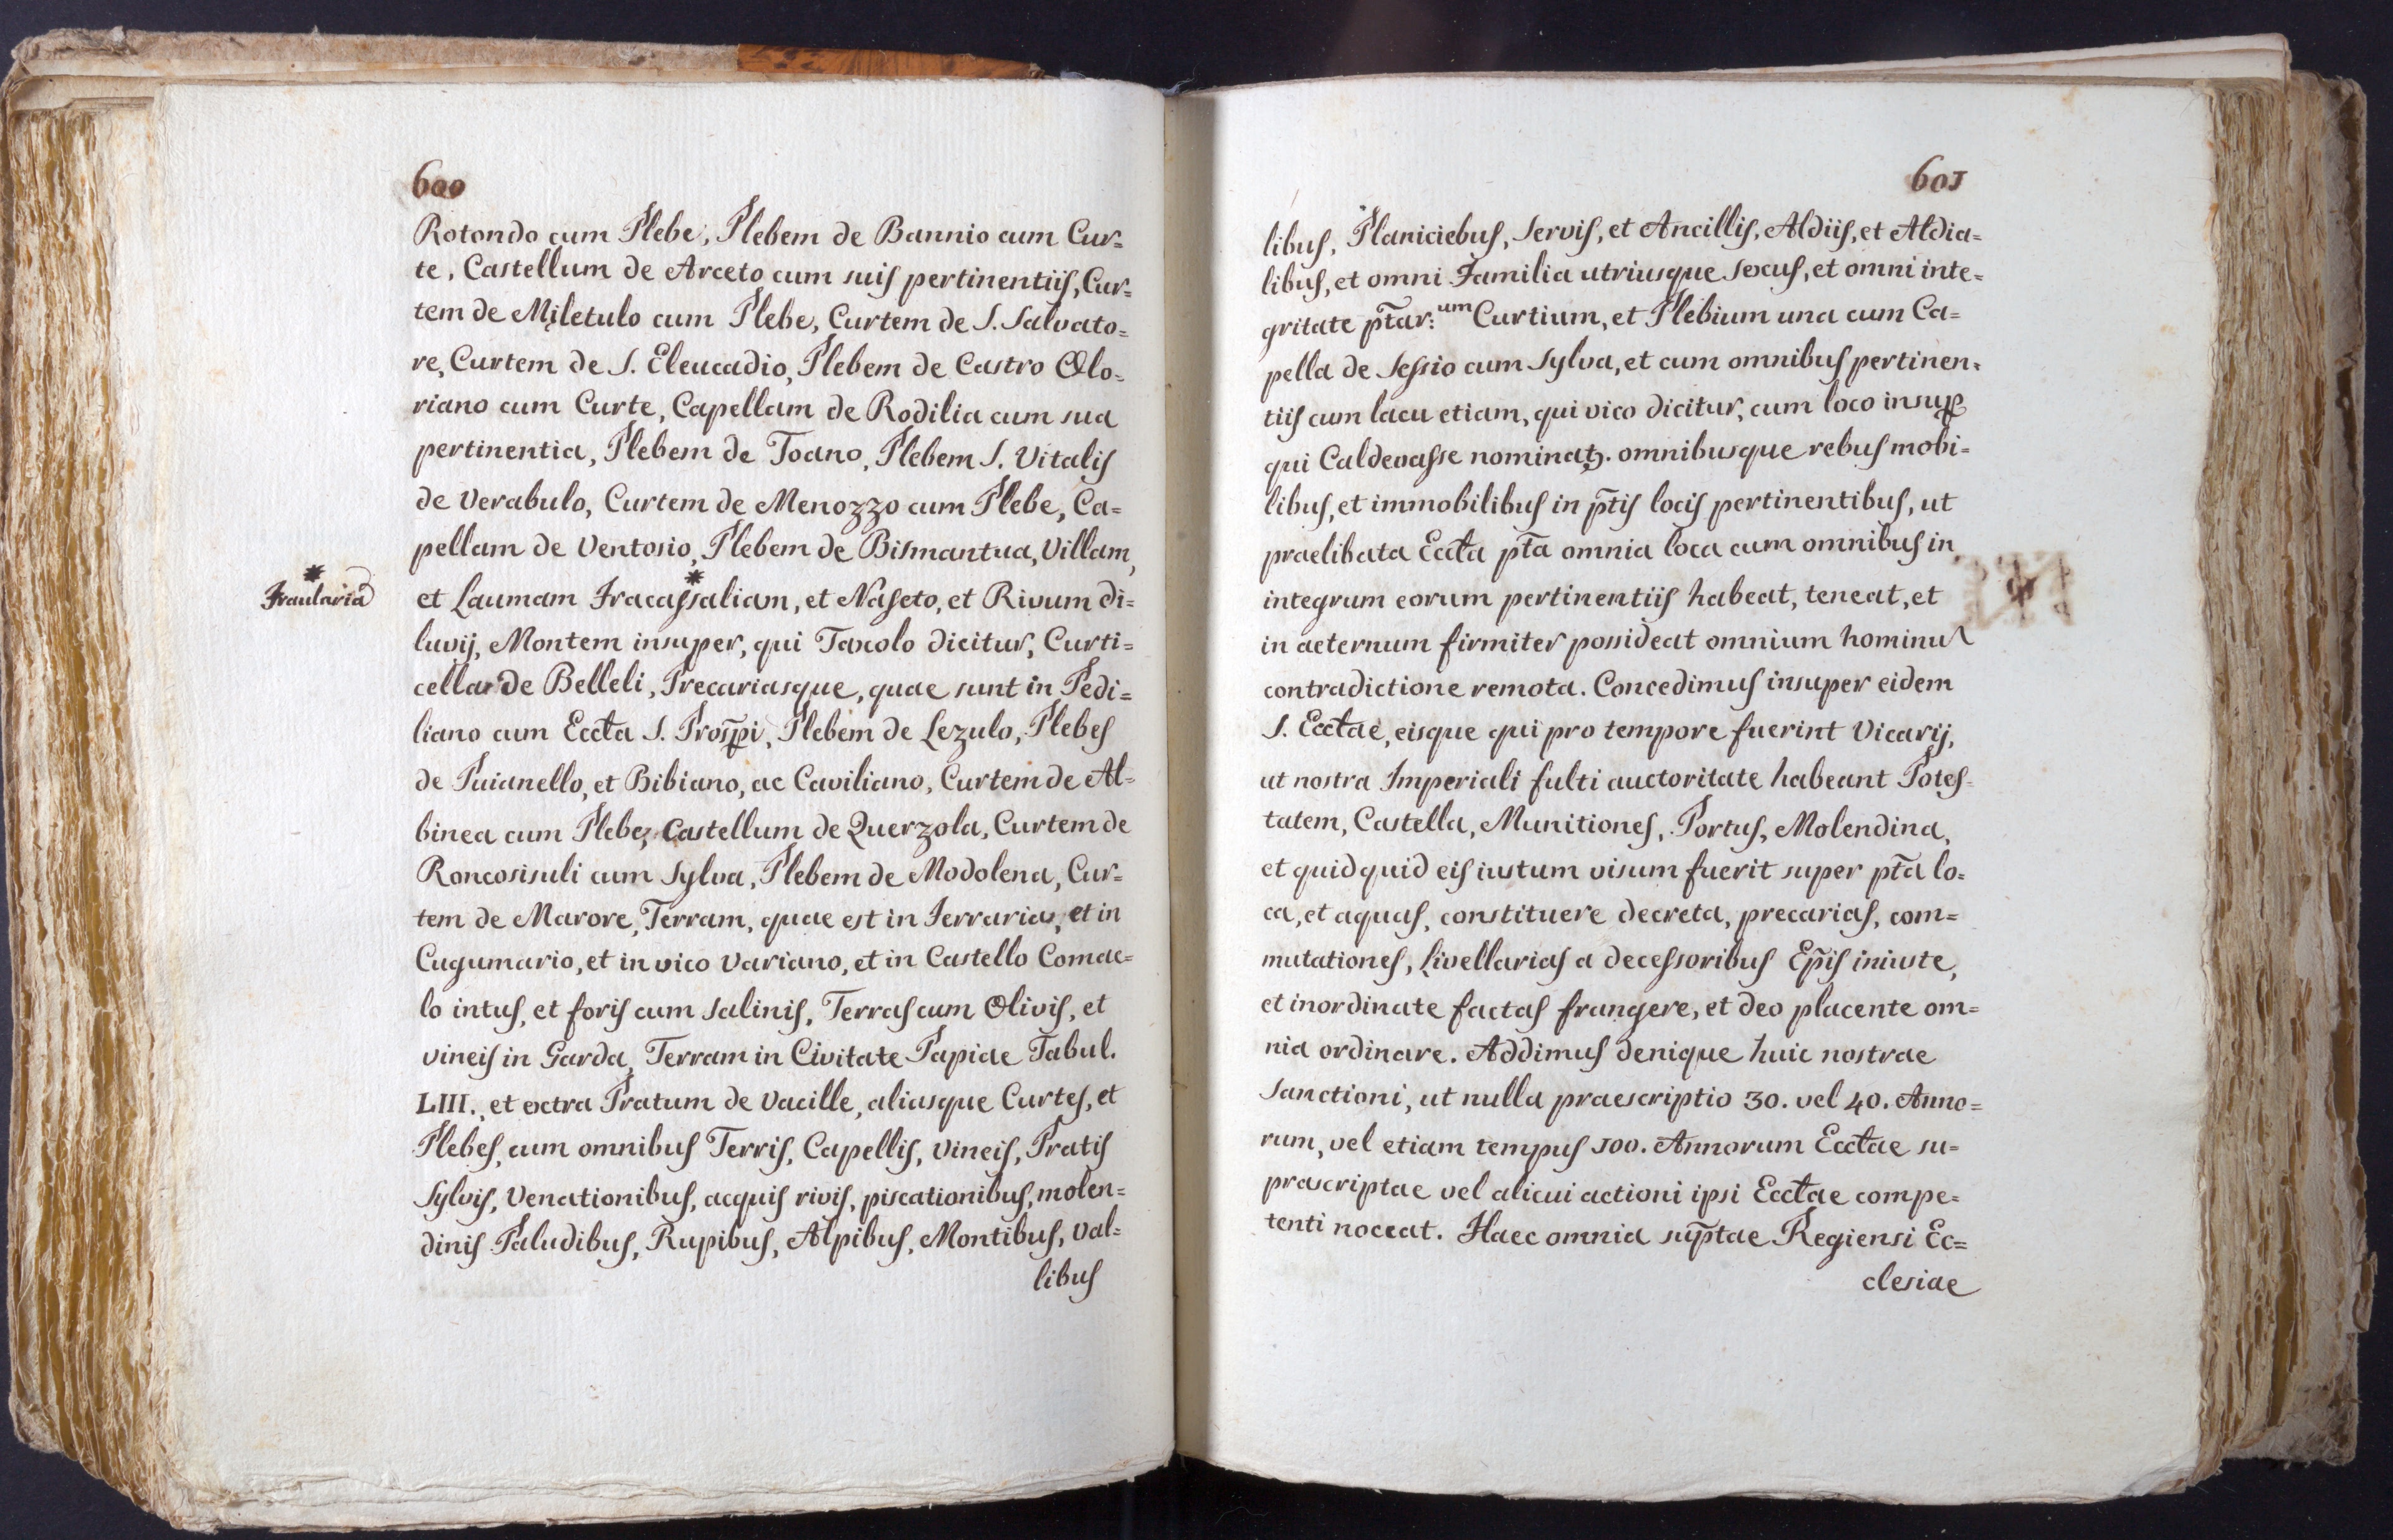 600
Rotondo cum Plebe, Plebem de Bannio cum Cur=
te, Castellum de Arceto cum suis pertinentiis, Cur=
tem de Miletulo cum Plebe, Curtem de S. Salvato=
re, Curtem de S. Eleucadio, Plebem de Castro Olo=
riano cum Curte, Capellam de Rodilia cum sua
pertinentia, Plebem de Toano, Plebem S. Vitalis
de Verabulo, Curtem de Menozzo cum Plebe, Ca=
pellam de Ventosio, Plebem de Bismantua, Villam,
* Fraularia
et Laumam Fracassaliam*, et Naseto, et Rivum di=
luvij, Montem insuper, qui Taxolo dicitur, Curti=
cellas de Belleli, Precariasque, quae sunt in Pedi=
liano cum Eccta S. Prosp̄i, Plebem de Lezulo, Plebes
de Puianello, et Bibiano, ac Caviliano, Curtem de Al=
binea cum Plebe, Castellum de Querzola, Curtem de
Roncosisuli cum Sylva, Plebem de Modolena, Cur=
tem de Marore, Terram, quae est in Ferrarias, et in
Cugumario, et in vico Variano, et in Castello Comac=
lo intus, et foris cum Salinis, Terras cum Olivis, et
vineis in Garda, Terram in Civitate Papiae Tabul.
LIII., et extra Pratum de Vacille, aliasque Curtes, et
Plebes, cum omnibus Terris, Capellis, Vineis, Pratis
Sylvis, Venationibus, acquis rivis, piscationibus, molen=
dinis Paludibus, Rupibus, Alpibus, Montibus, Val=
libus
601
libus, Planiciebus, Servis, et Ancillis, Aldiis, et Aldia=
libus, et omni Familia utriusque sexus, et omni inte=
gritate pt̄ar:um Curtium, et Plebium una cum Ca=
pella de Sessio cum Sylva, et cum omnibus pertinen=
tiis cum lacu etiam, qui vico dicitur, cum loco insuꝑ
qui Caldevasse nominatꝫ. omnibusque rebus mobi=
libus, et immobilibus in pt̄is locis pertinentibus, ut
praelibata Eccta pt̄a omnia loca cum omnibus in
integrum eorum pertinentiis habeat, teneat, et
in aeternum firmiter possideat omnium hominu
contradictione remota. Concedimus insuper eidem
S. Ecctae, eisque qui pro tempore fuerint Vicarij,
ut nostra Imperiali fulti auctoritate habeant Potes=
tatem, Castella, Munitiones, Portus, Molendina,
et quidquid eis iustum visum fuerit super pt̄a lo=
ca, et aquas, constituere decreta, precarias, com=
mutationes, Livellarias a decessoribus Ep̄is iniuste,
et inordinate factas frangere, et deo placente om=
nia ordinare. Addimus denique huic nostrae
Sanctioni, ut nulla praescriptio 30. vel 40. Anno=
rum, vel etiam tempus 100. Annorum Ecctae su=
prascriptae vel alicui actioni ipsi Ecctae compe=
tenti noceat. Haec omnia sup̄tae Regiensi Ec=
clesiae